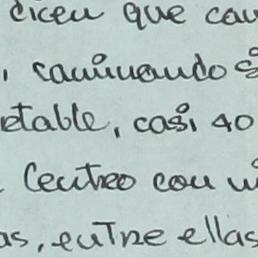 dicen que cau
, caminando s
etable, casi 40
Centro con u
as, entre ellas